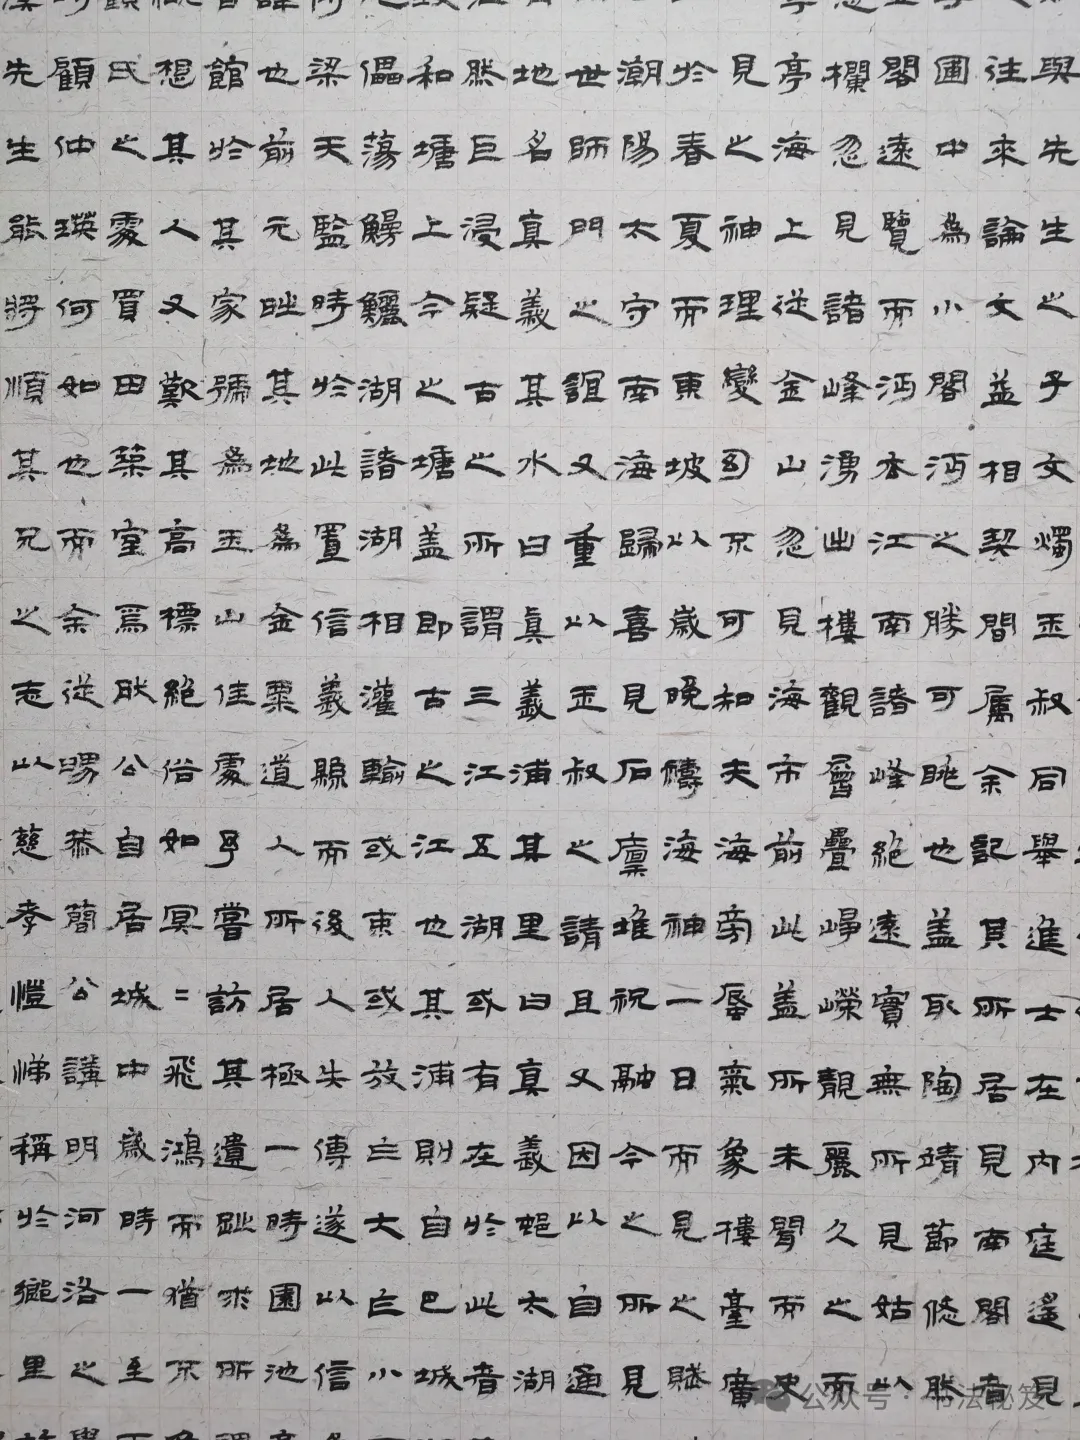 與先生之子文燭玉叔同舉進士在内庭遙見
往來論文益相契間屬余記其所居見南閣者
圃中為小閣沔之勝可眺也盖取陶靖節悠然
閣遠覽而沔本江南諸峰絕遠實無所見姑以
欄忽見諸峰湧出樓觀層疊崢嶸靚麗久之而
亭海上從金山忽見海市前此盖所未聞而史
見之神理變幻不可知夫海旁蜃氣象樓臺廣
於春夏而東坡以歲晚禱海神一日而見之賦
潮陽太守南海歸喜見石廩堆祝融今之所見
世師門之誼又重以玉叔之請且又因以自通
地名真義其水曰真義浦其里曰真義太湖
然巨浸疑古之所謂三江五湖或有在於此者
和塘上今之塘盖即古之江也其浦則自巴城
儡蕩鰻鱷湖諸湖相灌輸或東或放亡大亡小
梁天監時於此置信義縣而後人失傳遂以信
也前元時其地為金粟道人所居極一時園池
館於其家號為玉山佳處予嘗訪其遺趾求所
想其人又歎其高標絕俗如冥二飛鴻而猶不
氏之處買田築室焉耿公自居城中歲時一至
顧仲瑛何如也而余從恭簡公講明河洛之
先生能將順其兄之志以慈孝愷悌稱於鄉里
公众号·书法秘笈